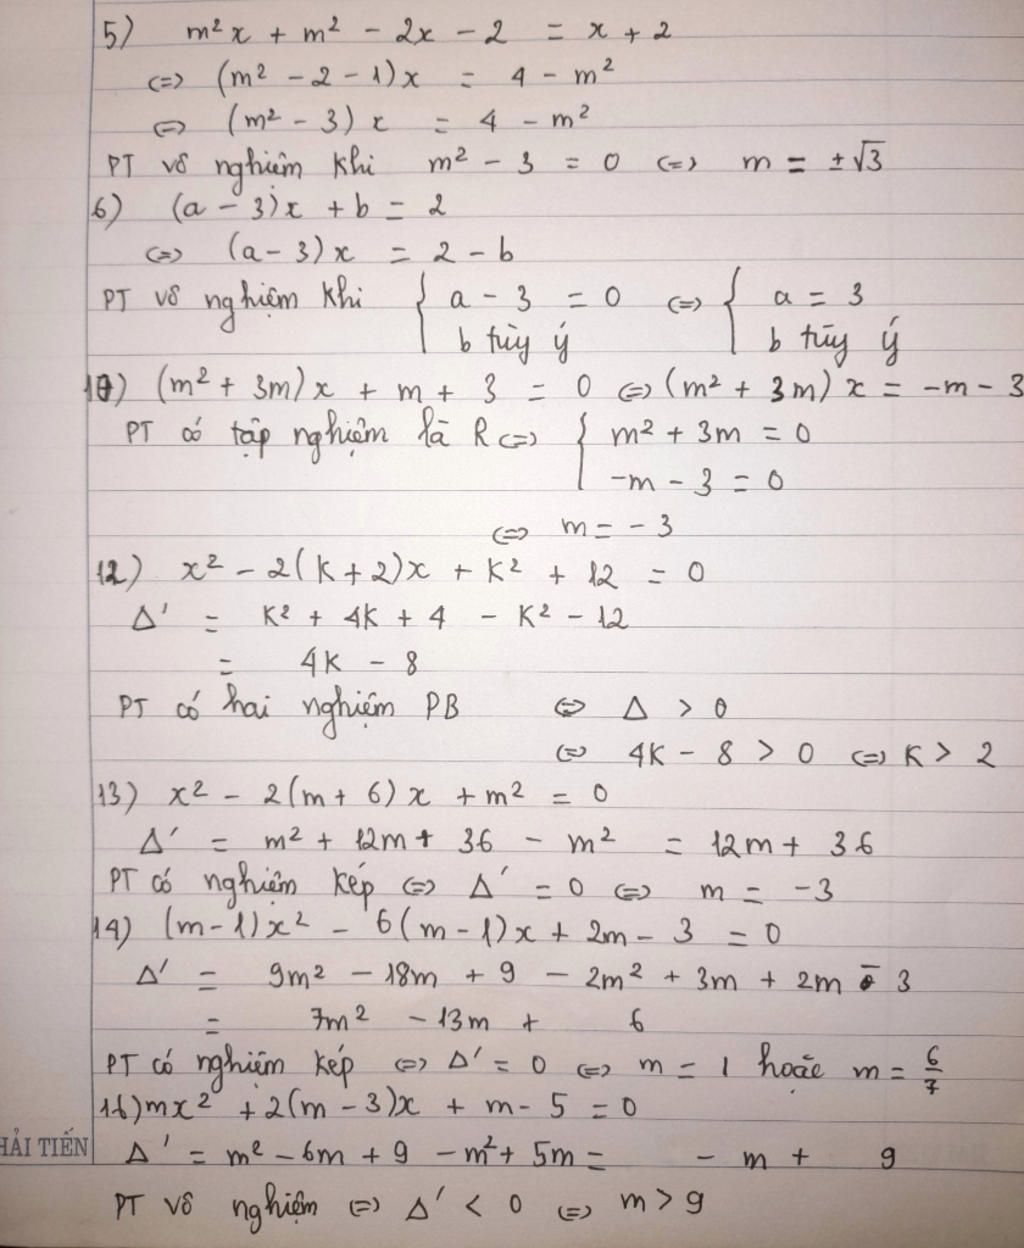 5) m²x + m² - 2x - 2 = x + 2
<=> (m² - 2 - 1)x = 4 - m²
<=> (m² - 3)x = 4 - m²
PT vô nghiệm khi m² - 3 = 0 <=> m = ±√3
6) (a - 3)x + b = 2
<=> (a - 3)x = 2 - b
PT vô nghiệm khi { a - 3 = 0 <=> { a = 3
b tùy ý b tùy ý
10) (m² + 3m)x + m + 3 = 0 <=> (m² + 3m)x = -m - 3
PT có tập nghiệm là R <=> { m² + 3m = 0
-m - 3 = 0
<=> m = -3
12) x² - 2(k + 2)x + k² + 12 = 0
Δ' = k² + 4k + 4 - k² - 12
= 4k - 8
PT có hai nghiệm PB <=> Δ > 0
<=> 4k - 8 > 0 <=> k > 2
13) x² - 2(m + 6)x + m² = 0
Δ' = m² + 12m + 36 - m² = 12m + 36
PT có nghiệm kép <=> Δ' = 0 <=> m = -3
14) (m - 1)x² - 6(m - 1)x + 2m - 3 = 0
Δ' = 9m² - 18m + 9 - 2m² + 3m + 2m - 3
= 7m² - 13m + 6
PT có nghiệm kép <=> Δ' = 0 <=> m = 1 hoặc m = 6/7
16) mx² + 2(m - 3)x + m - 5 = 0
HẢI TIẾN
Δ' = m² - 6m + 9 - m² + 5m = - m + 9
PT vô nghiệm <=> Δ' < 0 <=> m > 9